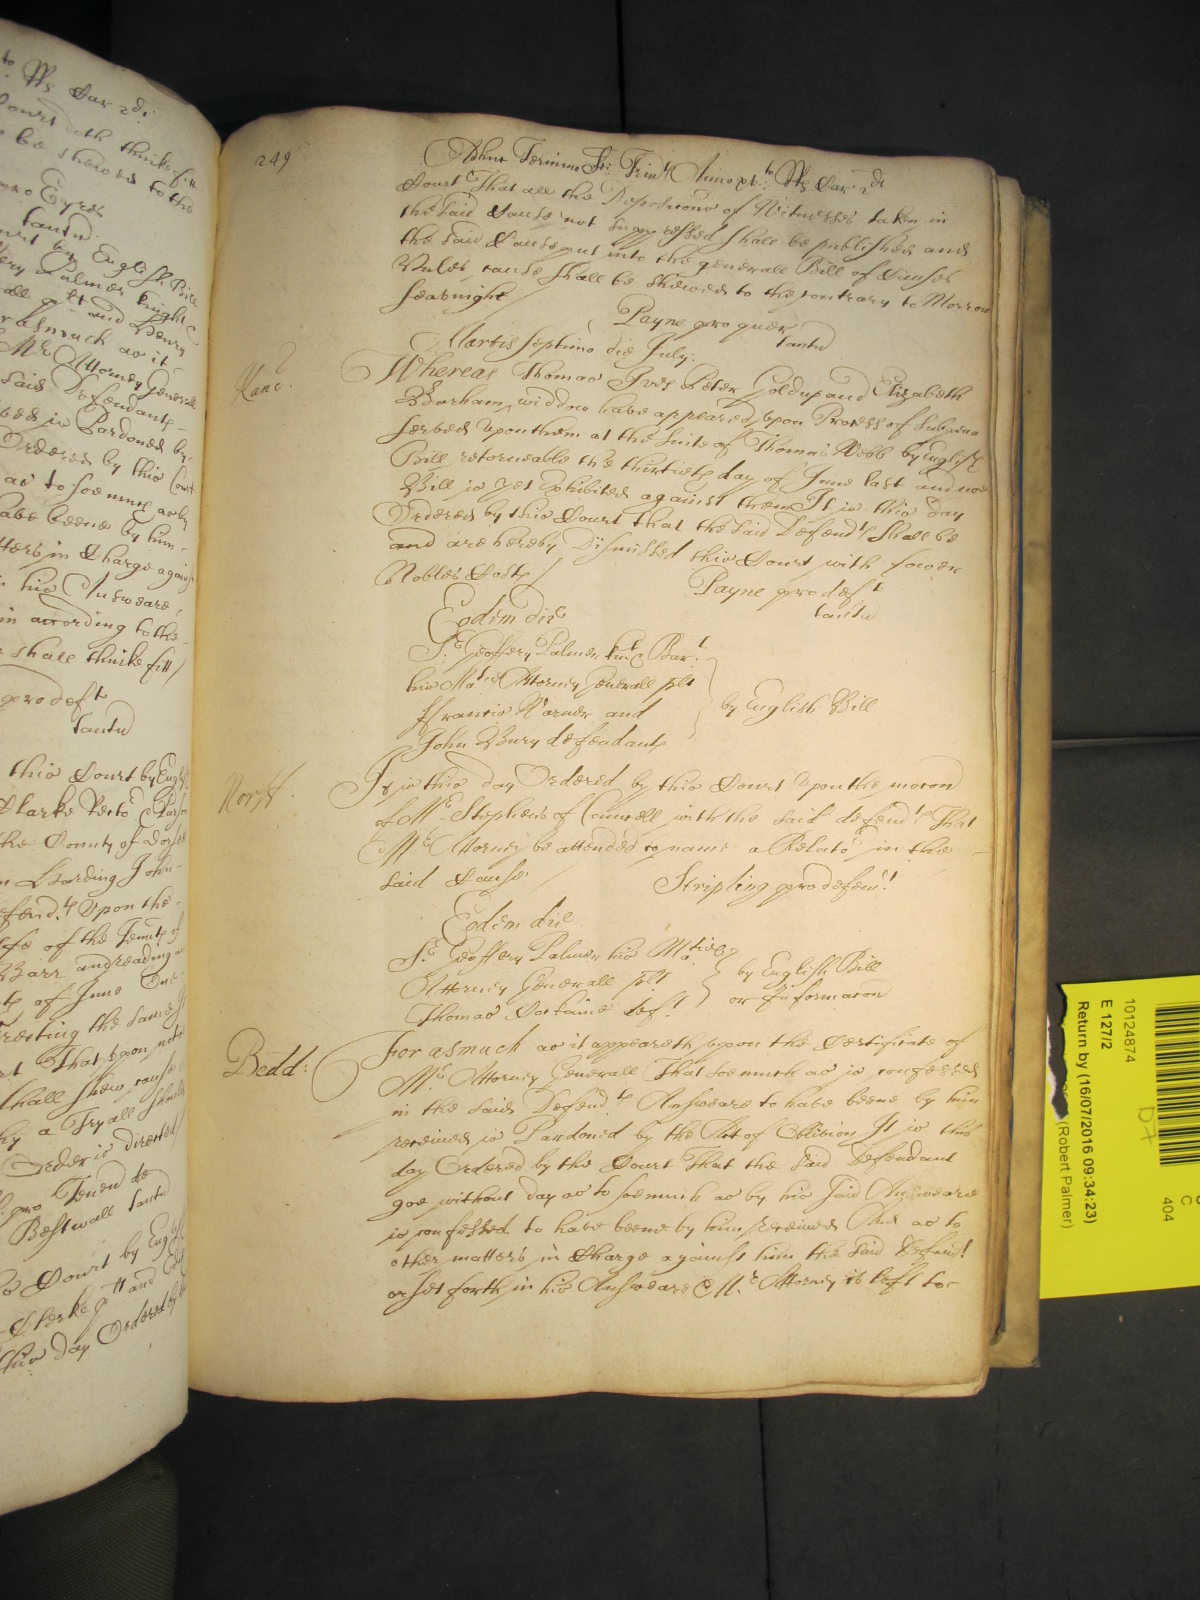 to Rs Car 2di
Court doth thinke fitt
be shewed to the
pro Eyres
tantu
Court by English Bill
ery Palmer knight
all plt and Henry
rasmuch as it
Mr Attorney Generall
said Defendants
ved is Pardoned by
Ordered by this Court
as to soe much as by
have beene by him
tters in Charge against
n his Answeare
in according to the
shall thinke fitt
pro deft
tantu
this Court by Engl
Clarke
the County of Dorset
n Harding John
efendts Upon the
Barr and reading
of June
recting the same
That upon notice
shall shew cause
why a Tryall should
Order is directed
pro
Bestwall tantu
Court by Engl
Clerke plt and
this day Ordered by
249
Adhuc Termino Ste Trint Anno xvito Rs Car 2di
Court That all the Deposicons of Witnesses taken in
the said Cause not suppressed shall be published and
the said Cause put into the generall Bill of Causes
Unles cause shall be shewed to the contrary to Morrow
seavnight
Payne pro quer
tantu
Martis septimo die July
Kanc.
Whereas Thomas Ives Peter Goldup and Elizabeth
Barham widdow have appeared upon Process of Subpena
served upon them at the suite of Thomas Webb by English
Bill retorneable the thirtieth day of June last and noe
Bill is yet exhibited against them It is this day
Ordered by this Court that the said Defendts shall be
and are hereby Dismissed this Court with fower
Nobles Costs
Payne pro deft
tantu
Eodem die
Sr Geoffery Palmer knt & Bart
his Mats Attorney Generall plt
ffrancis Warner and
John Bury defendants
by English Bill
Norff.
It is this day Ordered by this Court upon the mocon
of Mr Stephens of Councell with the said defendts That
Mr Attorney be attended to name a Relator in the
said Cause.
Stripling pro defend
Eodem die
Sr Geoffery Palmer his Maties
Attorney Generall plt
Thomas deft
by English Bill
or Informacon
Bedd:
For asmuch as it appeareth upon the Certificate of
Mr Attorney Generall That soe much as is confessed
in the said Defendts Answeare to have beene by him
received is Pardoned by the Act of Oblivion It is this
day Ordered by the Court That the said Defendant
goe without day as to soe much as by his said Answeare
is confessed to have beene by him received And as to
other matters in Charge against him the said Defendt
or set forth in his Answeare Mr Attorney is left to
10124874
E 127/2
Return by (16/07/2016 09:34:23)
(Robert Palmer)
D7
C
404